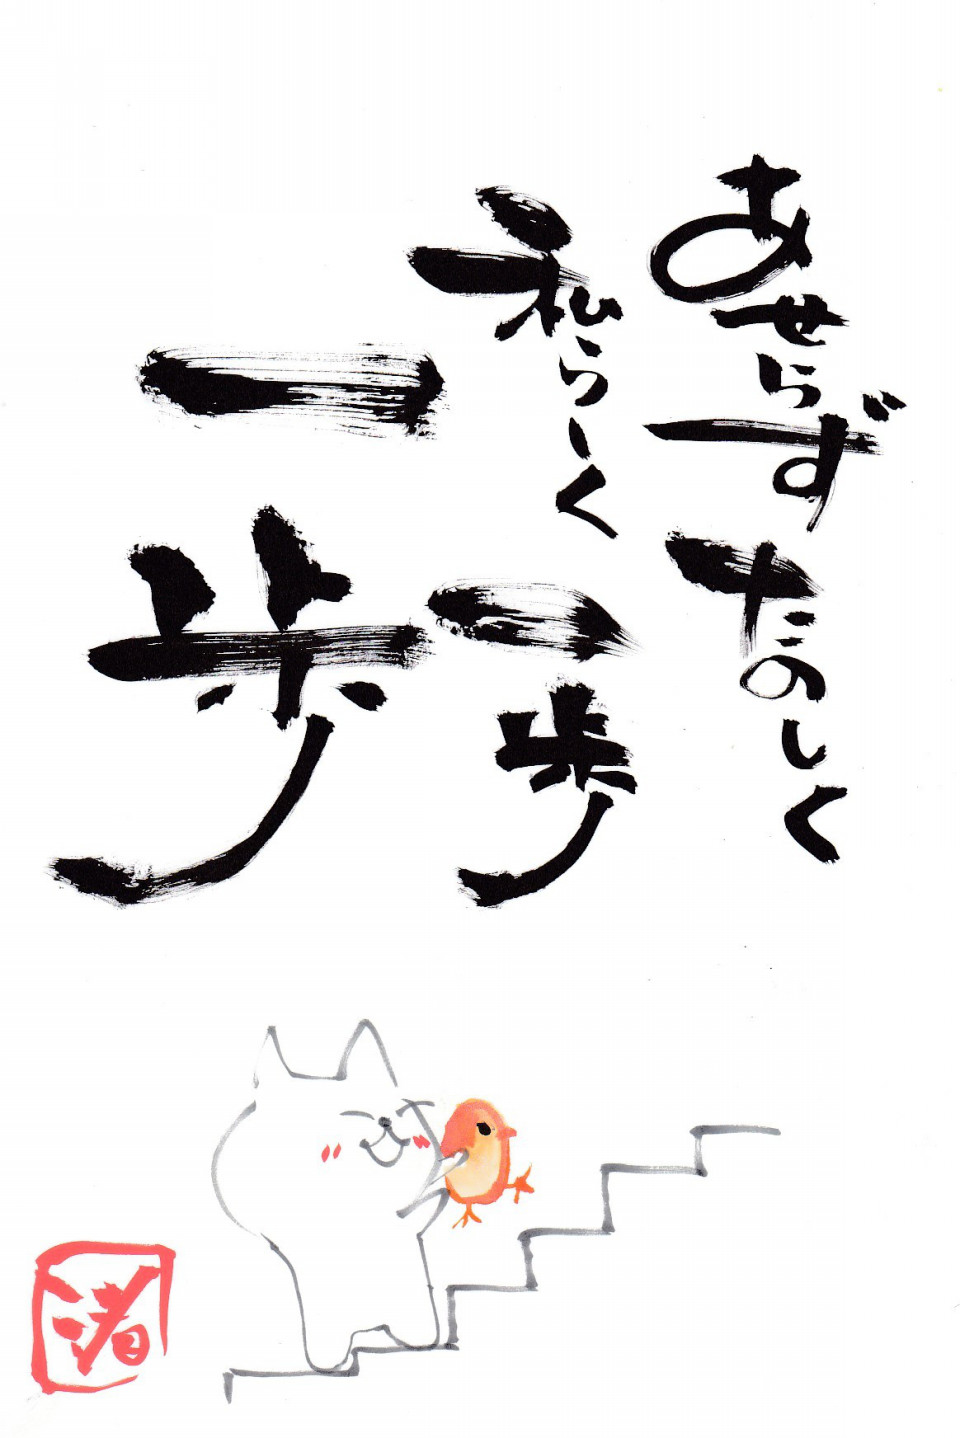 あせらずたのしく
私らしく
一歩
一歩
渚